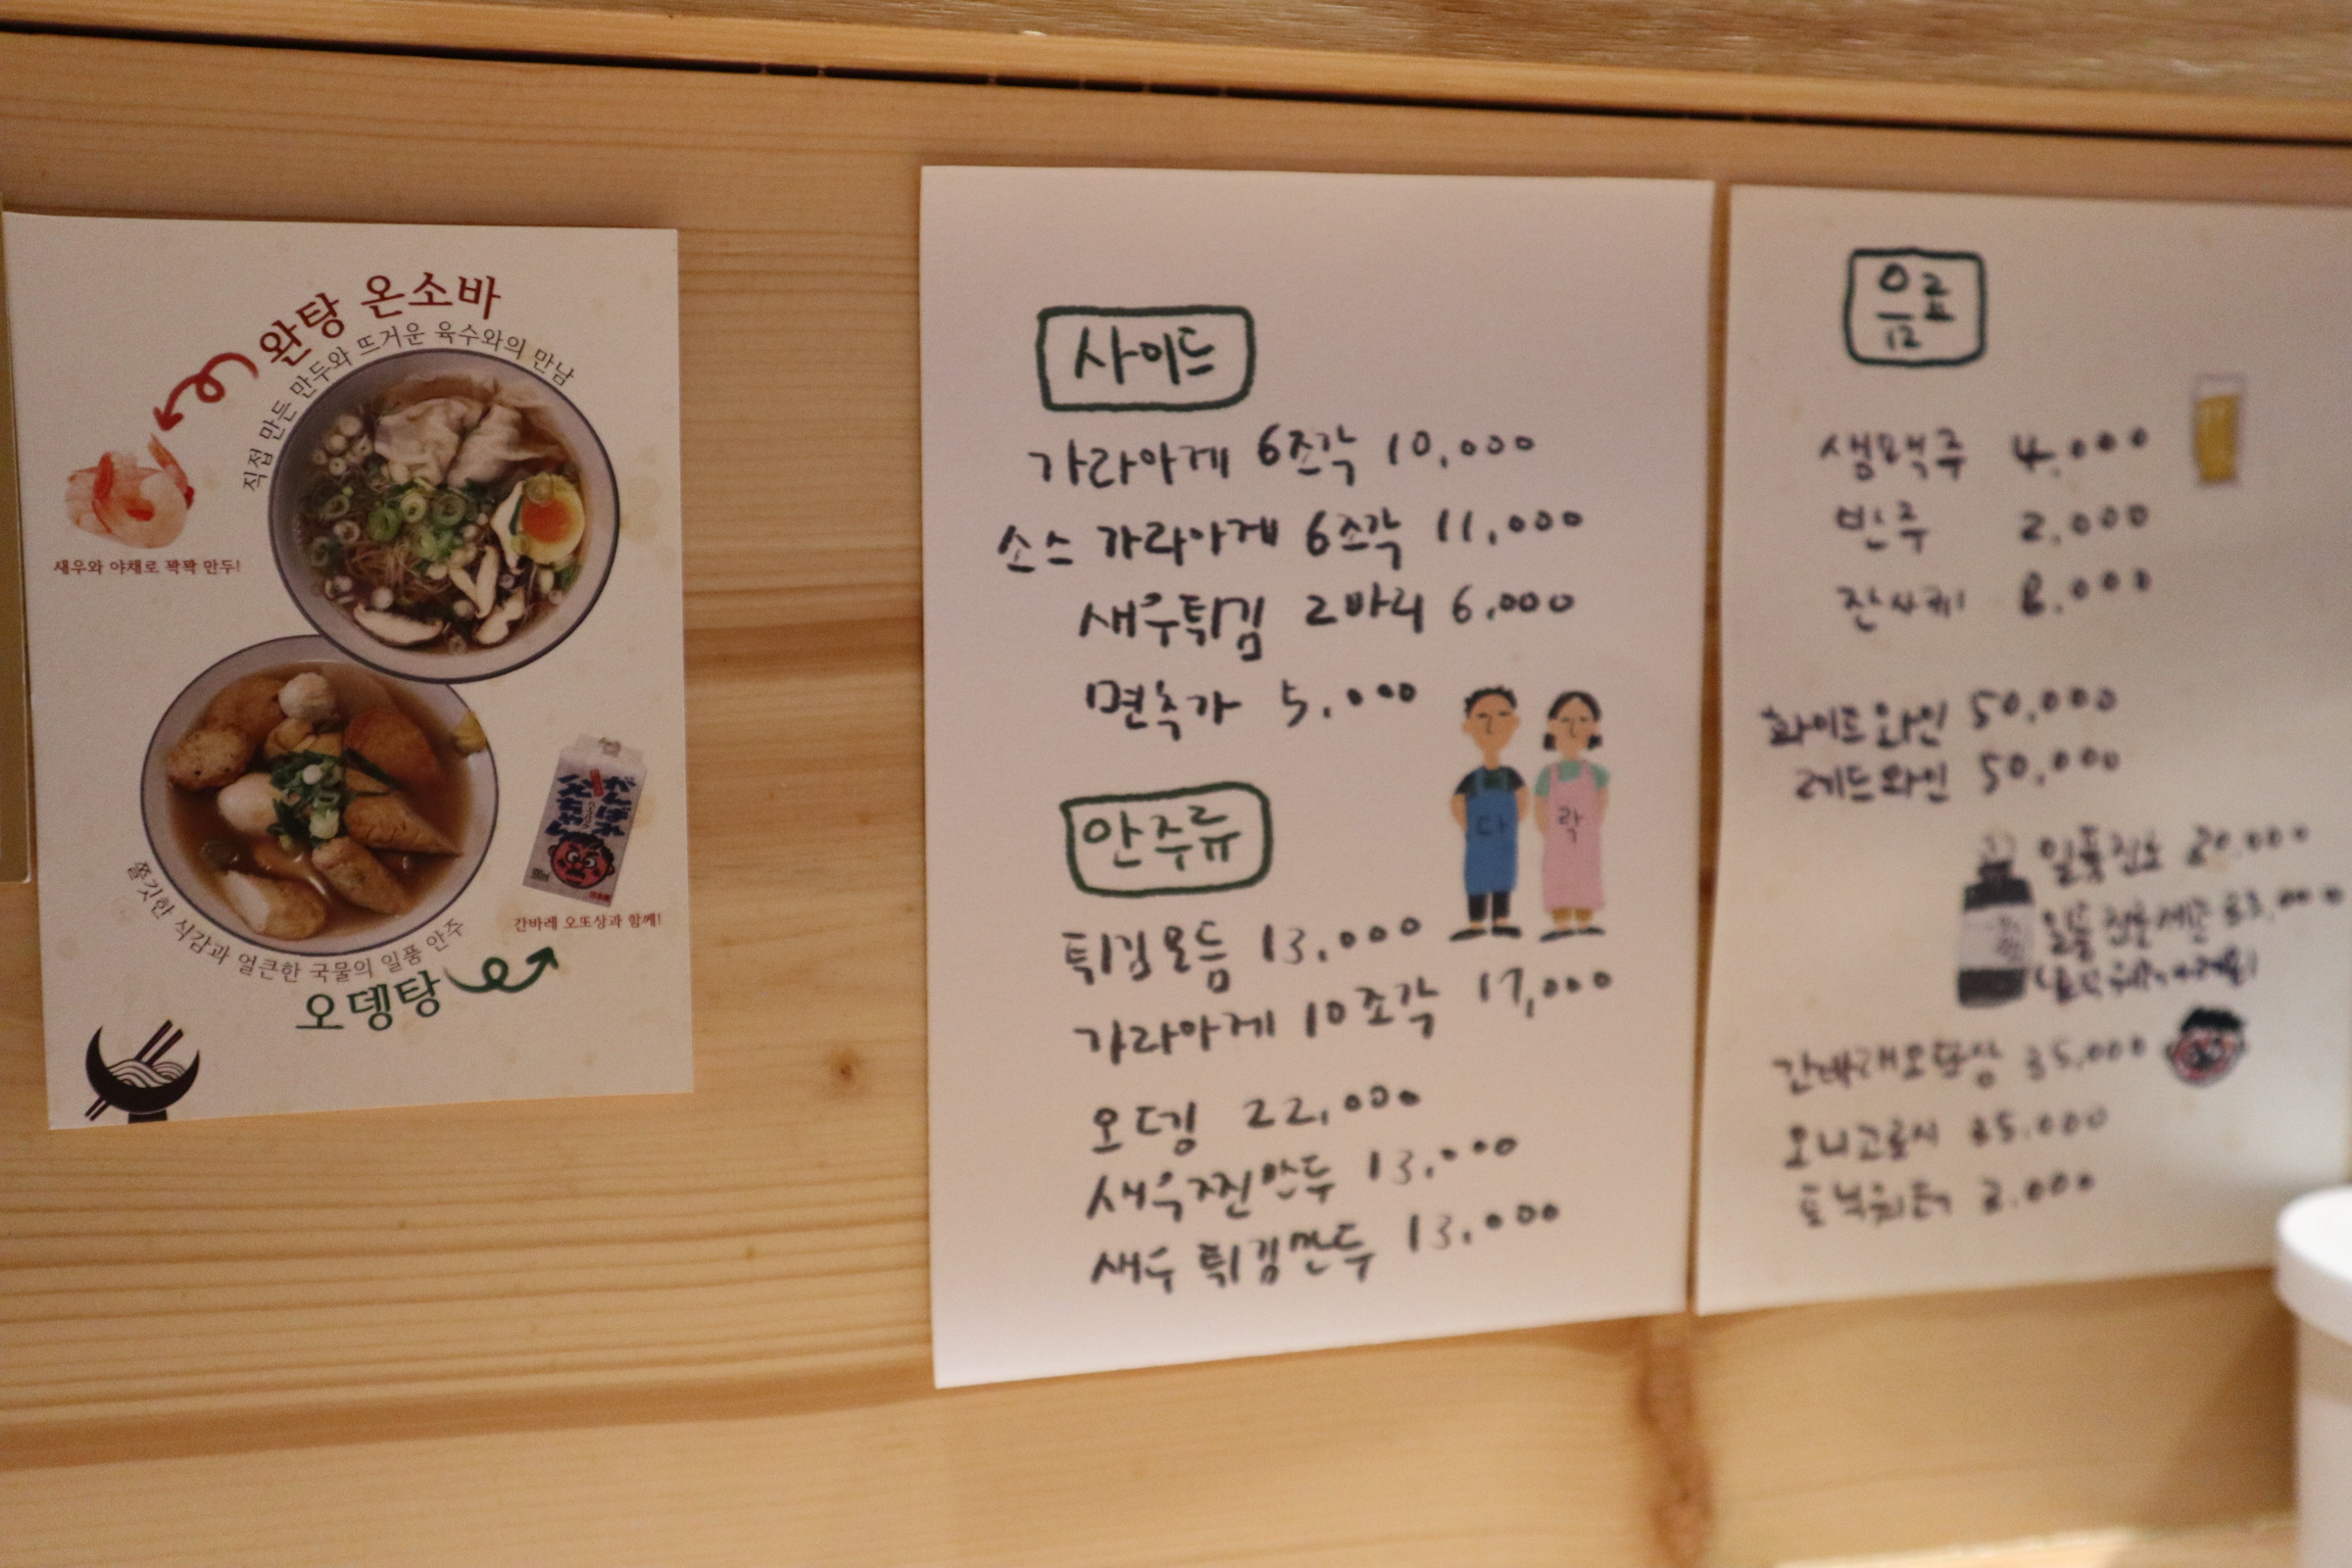 완탕 온소바
직접 만든 만두와 뜨거운 육수와의 만남
새우와 야채로 꽉꽉 만두!
がんばれ
父ちゃん
간바레 오또상과 함께!
쫄깃한 식감과 얼큰한 국물의 일품 안주
오뎅탕
사이드
가라아게 6조각 10,000
소스 가라아게 6조각 11,000
새우튀김 2마리 6,000
면추가 5,000
다 락
안주류
튀김모듬 13,000
가라아게 10조각 17,000
오뎅 22,000
새우찐만두 13,000
새우튀김만두 13,000
음료
생맥주 4,000
반주 2,000
잔사케 8,000
화이트와인 50,000
레드와인 50,000
일품진로 20,000
간바레오또상 35,000
오니고로시 35,000
토닉워터 2,000